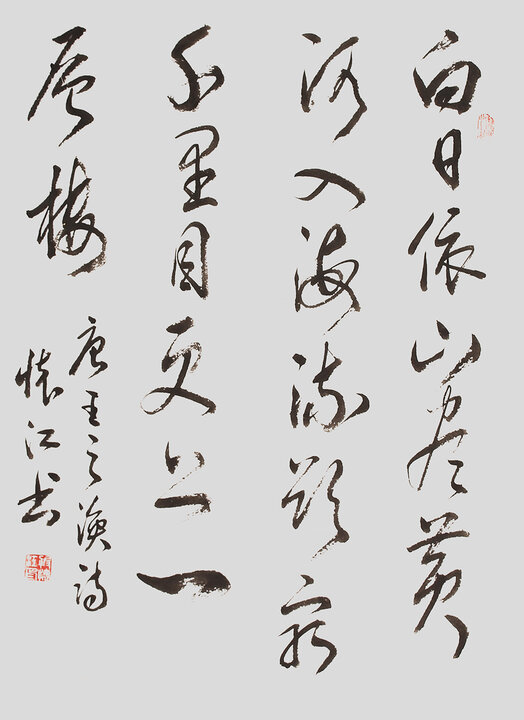 白日依山尽黄
河入海流欲穷
千里目更上一
层楼
唐王之涣诗
怀江书